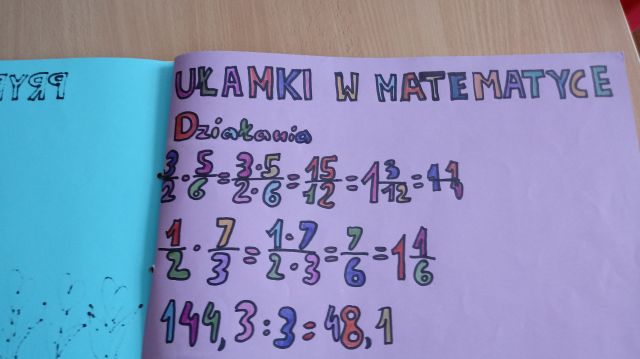 UŁAMKI W MATEMATYCE
Działania
3/2 · 5/6 = 3·5/2·6 = 15/12 = 1 3/12 = 1 1/4
1/2 · 7/3 = 1·7/2·3 = 7/6 = 1 1/6
144,3 : 3 = 48,1